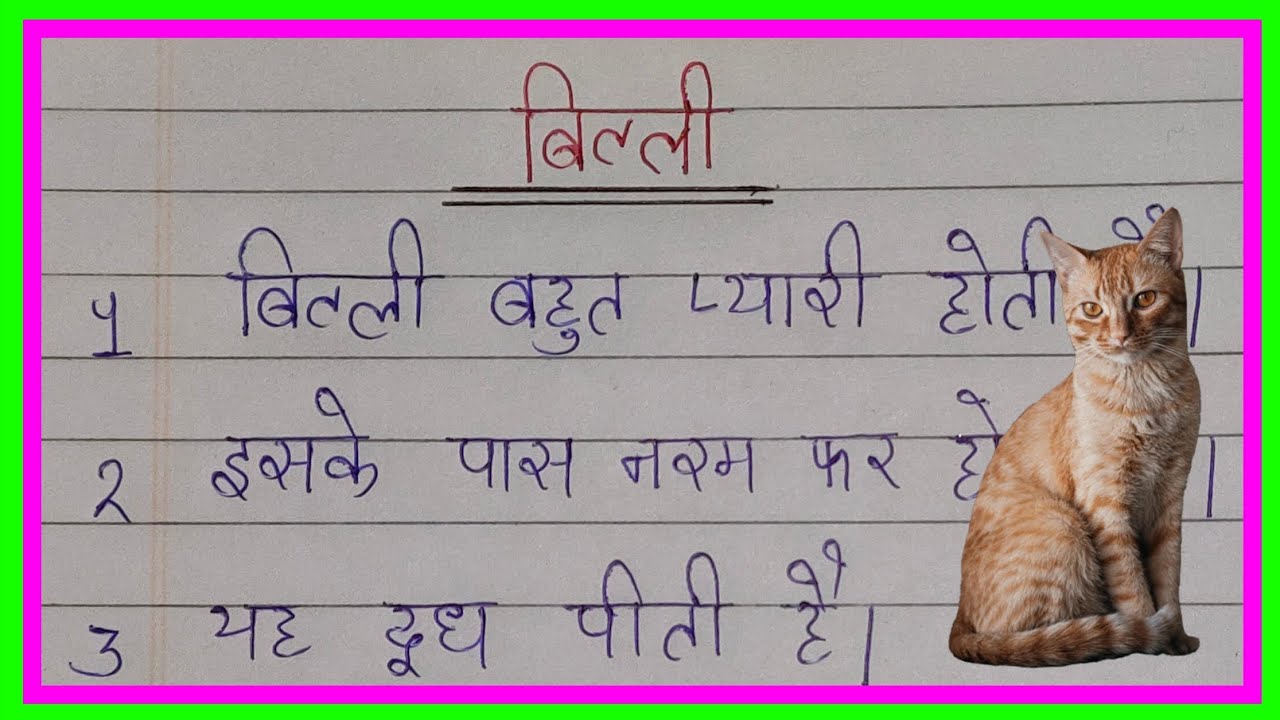 बिल्ली
१ बिल्ली बहुत प्यारी होती है।
२ इसके पास नरम फर ।
३ यह दूध पीती है।